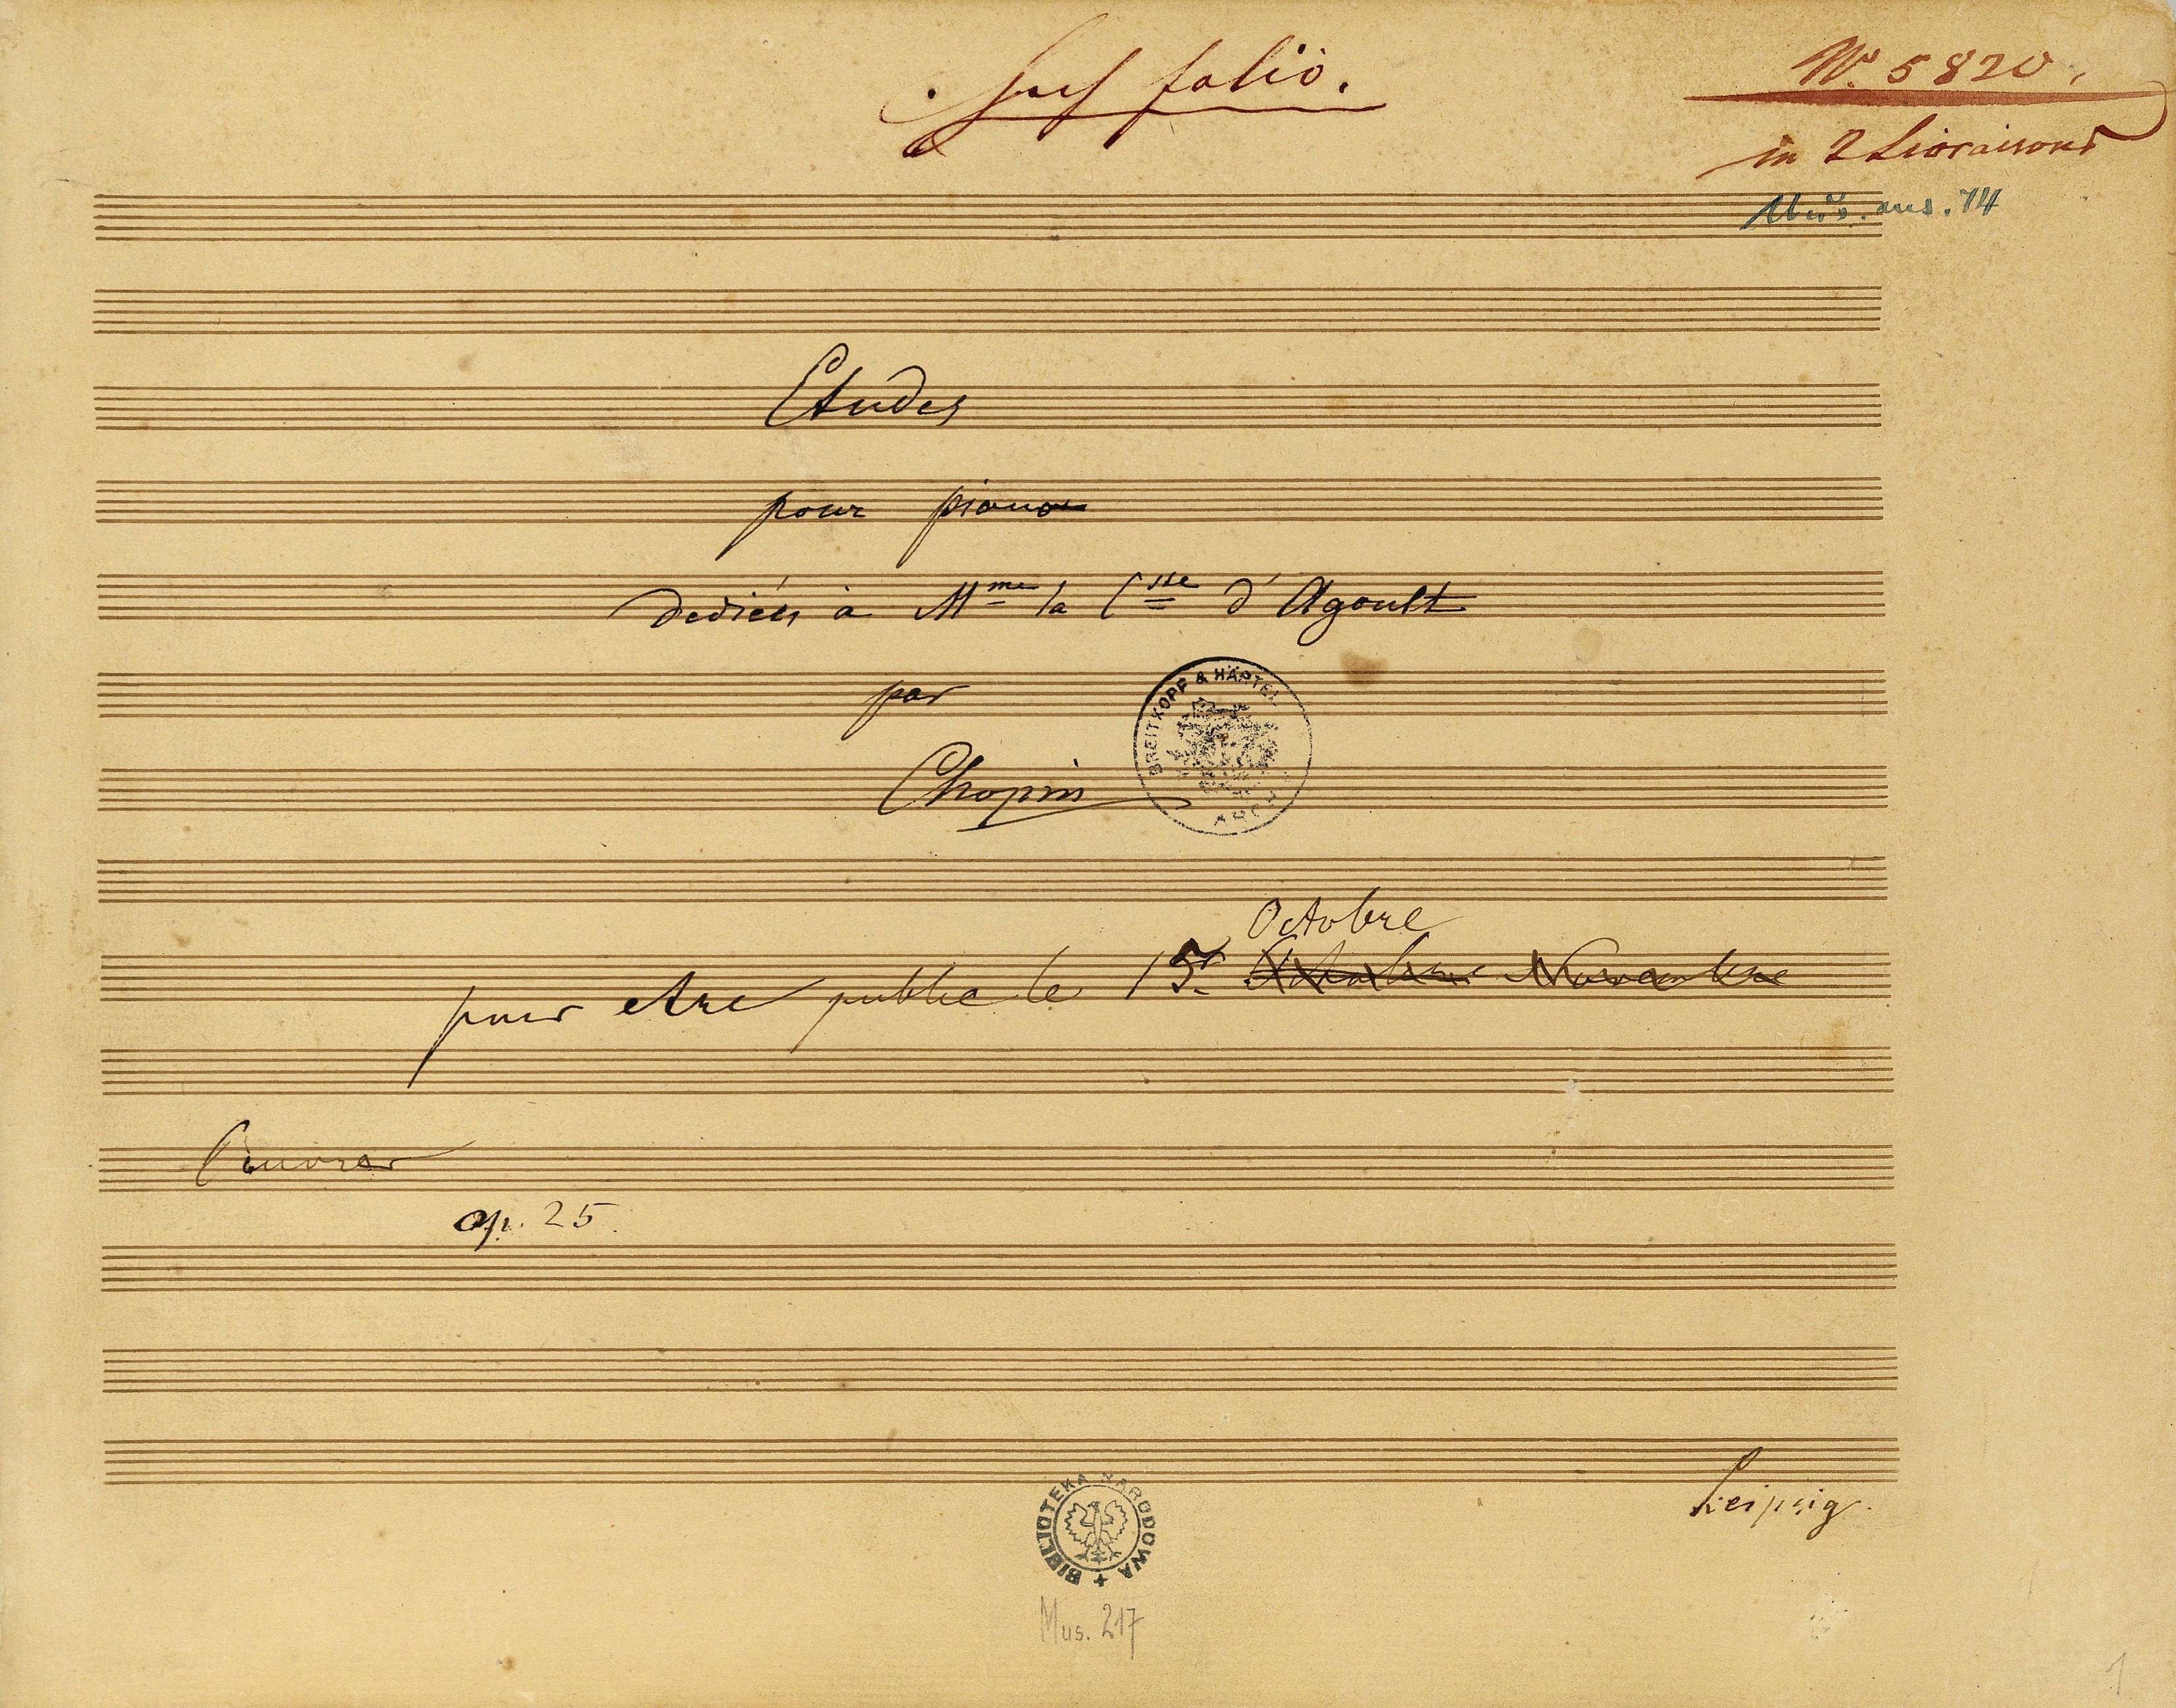 folio.
No. 5820.
in 2 Livraisons
Mus. ans. 14
Etudes
pour piano
dediées à Mme la Csse d'Agoult
par
Chopin
BREITKOPF & HÄRTEL
Octobre
pour etre publie le 15. Novembre
Oeuvres
op. 25.
Leipsig.
BIBLIOTEKA NARODOWA
Mus. 217
1